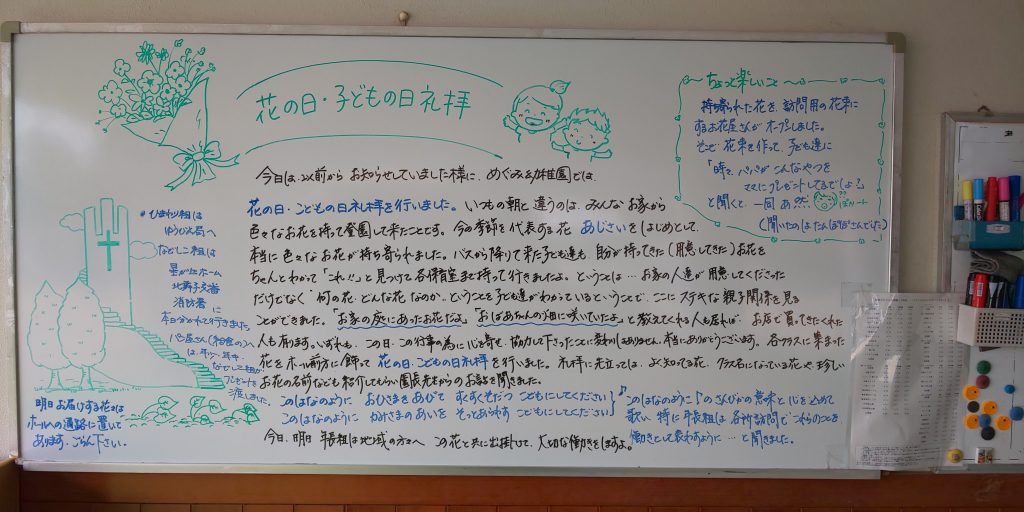 花の日・子どもの日礼拝
今日は、以前から お知らせしていました様に、めぐみ幼稚園では、
花の日・こどもの日礼拝を行いました。いつもの朝と違うのは、みんな お家から
色々なお花を持って登園して来たことです。今の季節を代表する花 あじさいをはじめとして、
本当に色々なお花が持ち寄られました。バスから降りて来た子ども達も、自分が持ってきた(用意してきた)お花を
ちゃんとわかって「これ!!」と見つけて各保育室まで持って行きましたよ。ということは…お家の人達が用意してくださった
だけでなく 何の花・どんな花 なのか、ということを子ども達がわかっているということで、ここに ステキな親子関係を見る
ことができました。「お家の庭にあったお花だよ」「おばあちゃんの畑に咲いていたよ」と教えてくれる人も居れば、お店で買ってきてくれた
人も居ます。いずれも、この日、この行事の為に心を寄せ、協力して下さったことに 本当にありがとうございます。各クラスに集まった
花を ホール前方に飾って 花の日・こどもの日礼拝を行いました。礼拝に先立っては、よく知ってる花、クラス名になっている花や、珍しい
お花の名前なども紹介してもらい 園長先生からのお話を聞きました。
このはなのように おひさまをあびて すくすくそだつ こどもにしてください
このはなのように かみさまのあいを そっとあらわす こどもにしてください
♪「このはなのように♪」のさんびかの意味と心をこめて
歌い 特に年長組は 各所訪問で これらのことを
働きとして表わすように… と聞きました。
今日、明日 年長組は地域の方々へ この花と共に出掛けて、大切な働きをしますよ。
ちょっと楽しいこと
持ち寄られた花を、訪問用の花束に
するお花屋さんが オープンしました。
そこで 花束を作って、子ども達に
「時々、パパが こんなやつを
ママに プレゼントしてるでしょ?」
と聞くと、一同 あ然…
(聞いたのは たんぽぽさんでした)
*ひまわり組は
ゆうびん局へ
なでしこ組は
星が丘ホーム
北舞子交番
消防署 に
本日分かれて行きました
プレゼントを
渡しました。
明日お届けする花束は
ホールへの通路に置いて
あります。ごらん下さい。